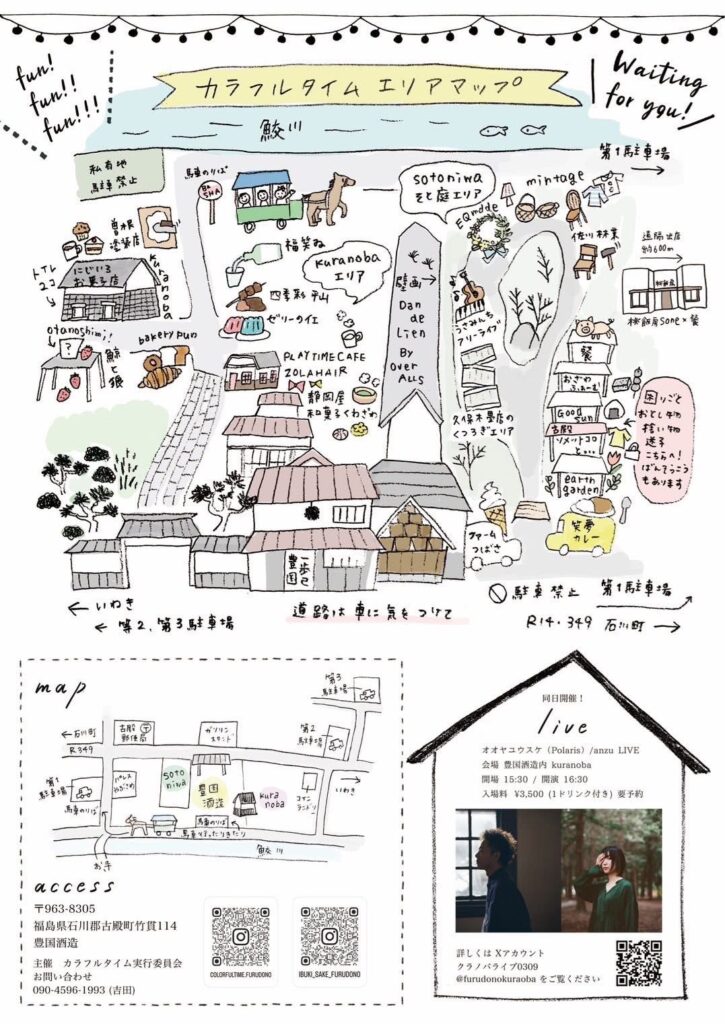 fun!
fun!!
fun!!!
カラフルタイム エリアマップ
Waiting
for you!
鮫川
第1駐車場
私有地
駐車禁止
馬車のりば
BA
SHA
sotoniwa
そと庭エリア
mintage
EQmdde
曽根
塗装店
福笑ね
kuranoba
エリア
佐川林業
遠隔出店
約600m
トイレ
2コ
にじいろ
お菓子店
kuranoba
四季彩 平山
壁画
Dan
de
Lien
By
Over
Alls
うさみんち
アリーライブ
ゼリーのイエ
otanoshimi!
?
鯨と狼
bakery pun
PLAYTIME CAFE
ZOLAHAIR
静岡屋
和菓子くわざわ
久保木畳店の
くつろぎエリア
おざわ
ふぁーむ
Good
sun
古殿
earth
garden
困りごと
おとし物
拾い物
迷子
こちらへ!
ばんそうこう
もあります
ファーム
つばさ
笑夢
カレー
豊国
一歩己
← いわき
← 第2、第3駐車場
道路は車に気をつけて
駐車禁止
第1駐車場
R14・349 石川町 →
map
第3
駐車場
← 石川町
R349
古殿
郵便局
ガソリン
スタンド
第2
駐車場
→
いわき
第1
駐車場
馬車のりば
soto
niwa
豊国
酒造
kura
noba
コイン
ランドリー
馬車のりば
馬車行ったりきたり
鮫川
access
〒963-8305
福島県石川郡古殿町竹貫114
豊国酒造
主催 カラフルタイム実行委員会
お問い合わせ
090-4596-1993 (吉田)
COLORFULTIME.FURUDONO
IBUKI_SAKE_FURUDONO
同日開催！
live
オオヤユウスケ（Polaris）/anzu LIVE
会場 豊国酒造内 kuranoba
開場 15:30 / 開演 16:30
入場料 ¥3,500 (1ドリンク付き) 要予約
詳しくは Xアカウント
クラノバライブ0309
@furudonokuraoba をご覧ください